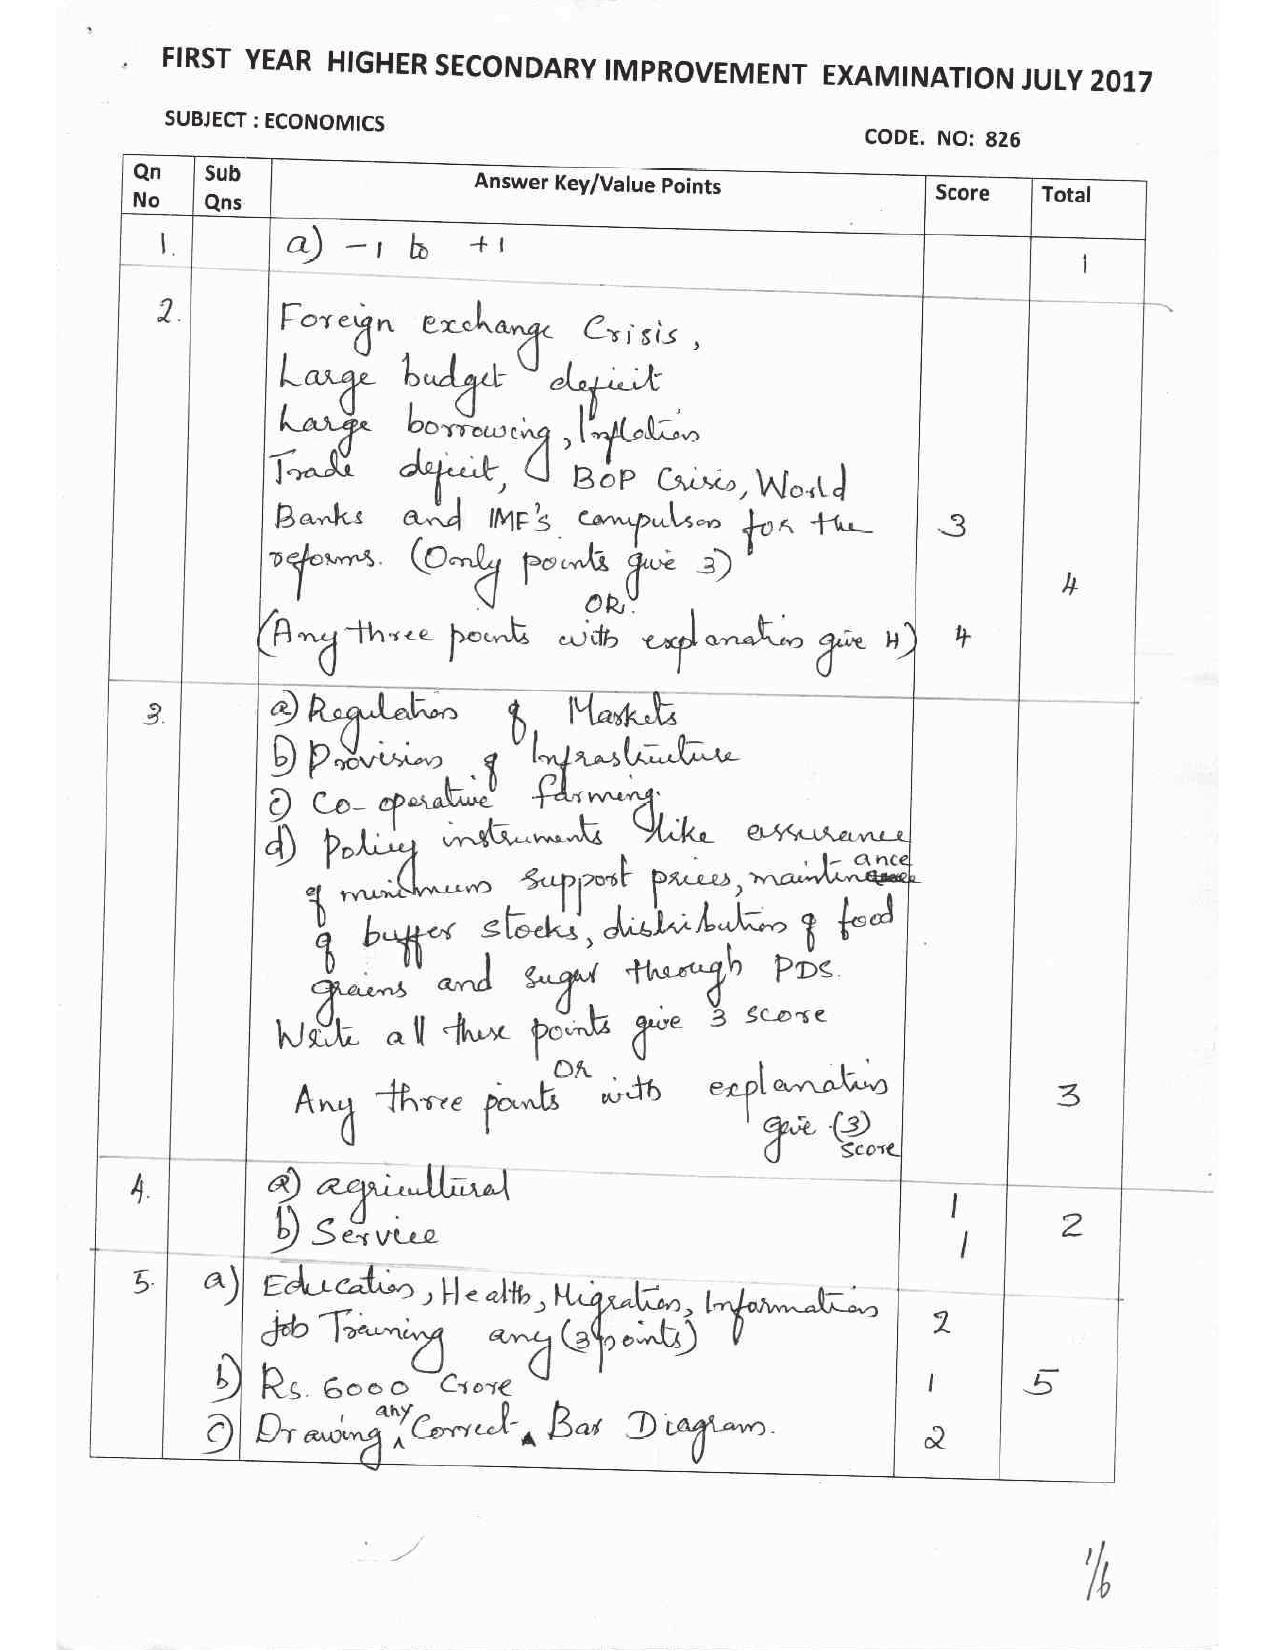 FIRST YEAR HIGHER SECONDARY IMPROVEMENT EXAMINATION JULY 2017
SUBJECT : ECONOMICS
CODE. NO: 826
Qn No Sub Qns Answer Key/Value Points Score Total
1. a) -1 to +1 1
2. Foreign exchange Crisis,
Large budget deficit
Large borrowing, Inflation
Trade deficit, BOP Crisis, World
Banks and IMF's compulson for the 3
reforms. (Only points give 3)
4
OR.
(Any three points with explanation give 4) 4
3. a) Regulation of Markets
b) Provision of Infrastructure
c) Co-operative farming.
d) Policy instruments like assurance
of minimum support prices, maintinance
of buffer stocks, distribution of food
grains and sugar through PDS.
Write all these points give 3 score
OR
Any three points with explanation 3
give (3)
score
4. a) agricultural 1
b) Service 1 2
5. a) Education, Health, Migration, Information
Job Training any (3 points) 2
b) Rs. 6000 Crore 1 5
c) Drawing any Correct Bar Diagram. 2
1/6